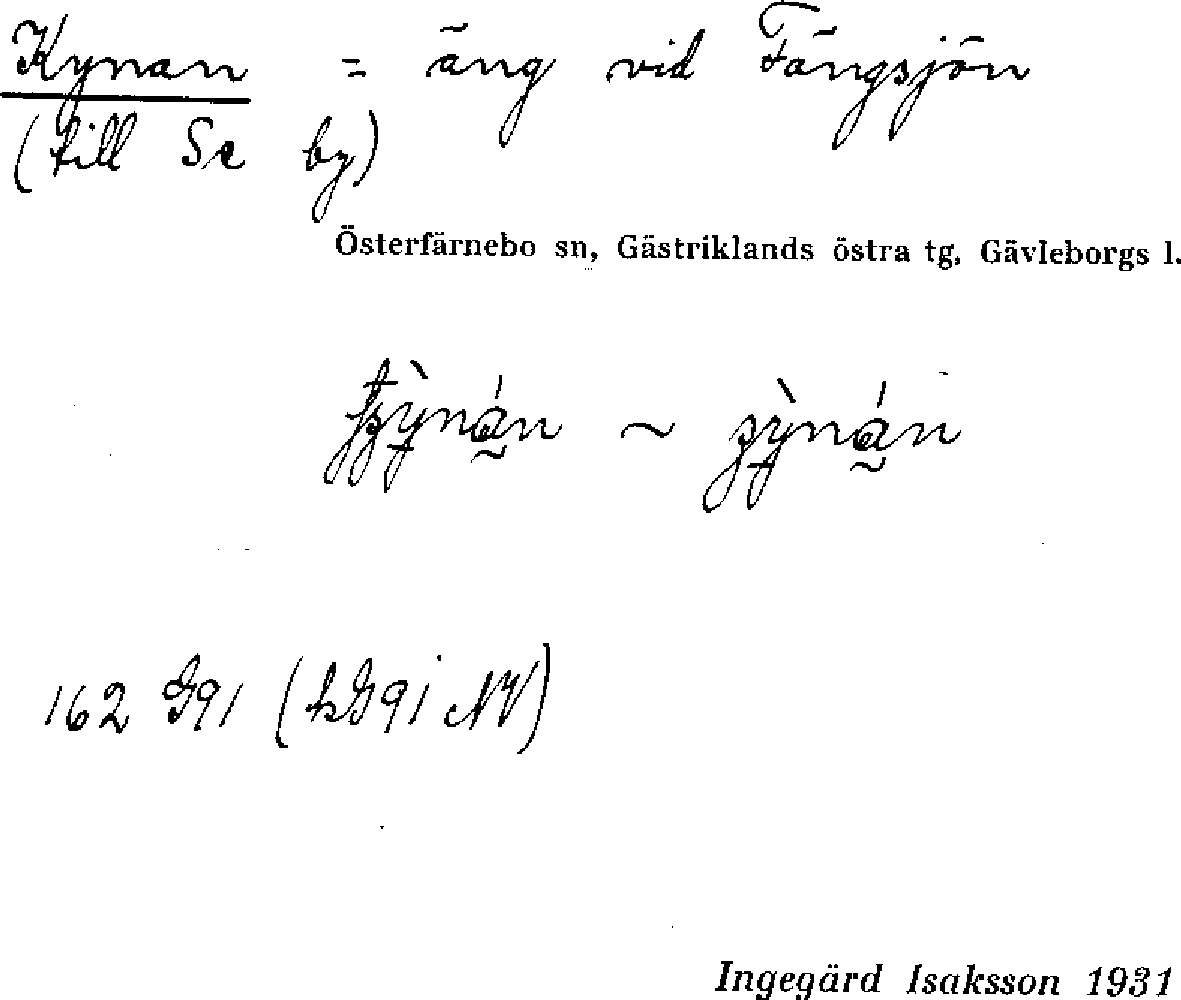 Kynan = äng vid Fängsjön
(till Se by)
Österfärnebo sn, Gästriklands östra tg, Gävleborgs l.
~
162 G91 (kG91 NV)
Ingegärd Isaksson 1931